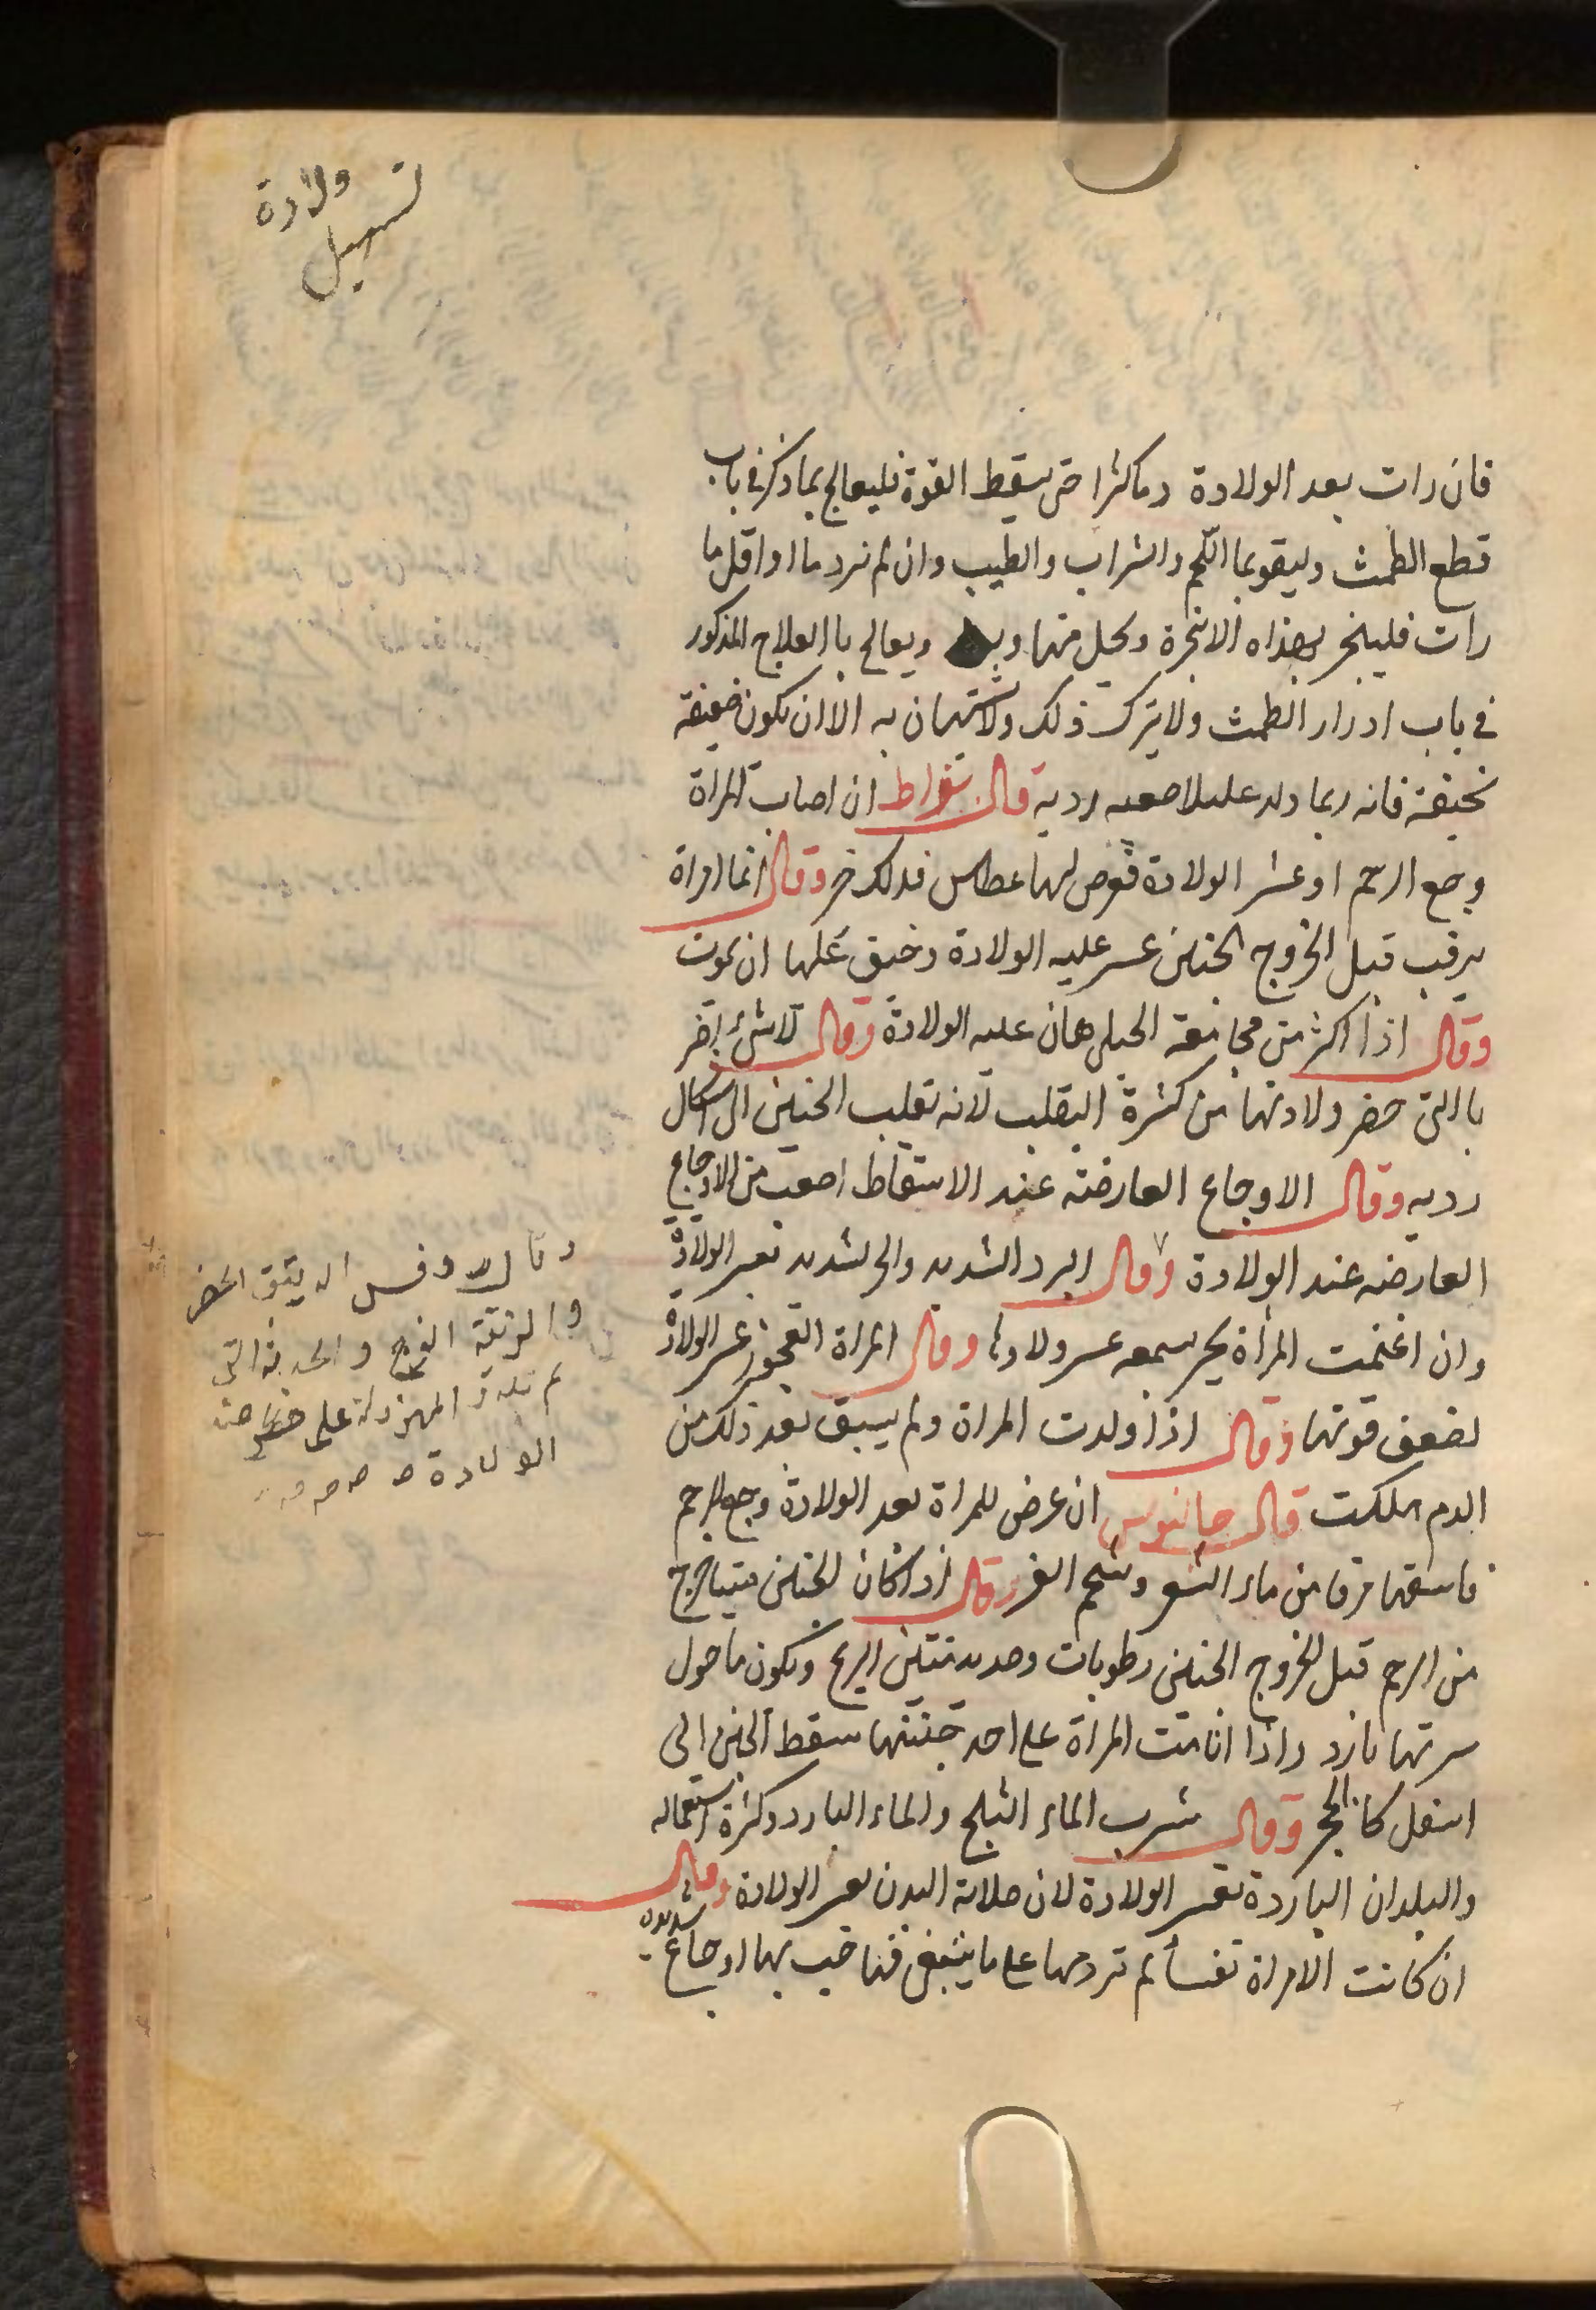 تسهيل
ولادة
فان رات بعد الولادة دما كثرا حتى يسقط القوة فليعالج بما ذكر في باب
قطع الطمث وليقو بما اللحم والشراب والطيب وان لم نرد ما او اقل ما
رات فليبخر بهذاه الابخرة وتحيل منها ويعالج باالعلاج المذكور
في باب ادرار الطمث ولا يترك ذلك ولا ستهان به الا ان يكون ضعيفة
نحيفة فانه ربما ولد عليلا صعبه رديه قال بقراط ان اصاب المراة
وجع الرحم او عسر الولادة فعرض لها عطاس فذلك خير وقال انما امراة
يرقب قبل الخروج الجنين عسر عليه الولادة وخيق عليها ان تموت
وقال اذا اكثر من مجامعة الحبلى هان عليه الولادة وقال لا شئ اضر
باالتى حضر ولادتها من كثرة التقلب لانه تقلب الجنين الى اشكال
رديه وقال الاوجاع العارضة عند الاسقاط اصعب من الاوجاع
العارضه عند الولادة وقال البرد الشديد والحر الشديد تعسر الولادة
وان اغتمت المراة بخبر سمعه عسر ولادتها وقال المراة العجوز عسر الولادة
لضعف قوتها وقال اذا ولدت المراة ولم يسبق بعد ذلك من
الدم هلكت قال جالينوس ان عرض للمراة بعد الولادة وجع الرحم
فاسقها مرقا من ماء الشعير وشحم وقال اذا كان الجنين ميتا خرج
من الرحم قبل الخروج الجنين رطوبات وصديد منتن الريح ويكون ما حول
سرتها بارد واذا انامت المراة على احد جنبتها سقط الجنين الى
اسفل كالحجر وقال شرب الماء الثلج والماء البارد وكثرة استعماله
والبلدان الباردة تعسر الولادة لان صلابة البدن تعسر الولادة وقال
ان كانت الامراة نفسا لم تردمها على ما ينبغى فها جب بها اوجاع شديدة
وقال روفس الديتق الحضر
والرتقة الفرج والحدثة التى
لم تلد و المهزولة على خطر عند
الولادة